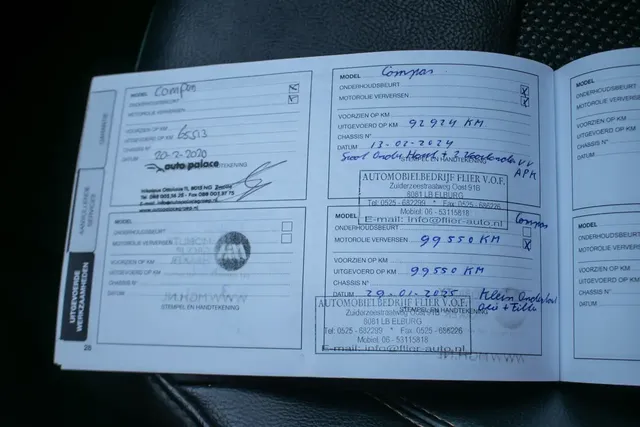 GARANTIE
AANVULLENDE SERVICES
UITGEVOERDE WERKZAAMHEDEN
MODEL Compas
ONDERHOUDSBEURT
MOTOROLIE VERVERSEN
VOORZIEN OP KM
UITGEVOERD OP KM 65513
CHASSIS N°
DATUM 20-2-2020
auto palace
www.autopalacegroep.nl
MODEL
ONDERHOUDSBEURT
MOTOROLIE VERVERSEN
VOORZIEN OP KM
UITGEVOERD OP KM
CHASSIS N°
DATUM
STEMPEL EN HANDTEKENING
20
MODEL Compas
ONDERHOUDSBEURT
MOTOROLIE VERVERSEN
VOORZIEN OP KM
UITGEVOERD OP KM 92924 KM
CHASSIS N°
DATUM 13-02-2024
APK
STEMPEL EN HANDTEKENING
AUTOMOBIELBEDRIJF FLIER V.O.F.
Zuiderzeestraatweg Oost 91B
8081 LB ELBURG
Tel: 0525 - 682299 * Fax: 0525 - 686226
Mobiel: 06 - 53115818
E-mail: info@flier-auto.nl
MODEL Compas
ONDERHOUDSBEURT
MOTOROLIE VERVERSEN 99550 KM
VOORZIEN OP KM
UITGEVOERD OP KM 99550 KM
CHASSIS N°
DATUM 29-01-2025
Klein Onderhoud
STEMPEL EN HANDTEKENING
AUTOMOBIELBEDRIJF FLIER V.O.F.
Zuiderzeestraatweg Oost 91B
8081 LB ELBURG
Tel: 0525 - 682299 * Fax: 0525 - 686226
Mobiel: 06 - 53115818
E-mail: info@flier-auto.nl
MODEL
ONDERHOUDSBEURT
MOTOROLIE VERVERSEN
VOORZIEN OP KM
UITGEVOERD OP KM
CHASSIS N°
DATUM
MODEL
ONDERHOUDSBEURT
MOTOROLIE VERVERSEN
VOORZIEN OP KM
UITGEVOERD OP KM
CHASSIS N°
DATUM